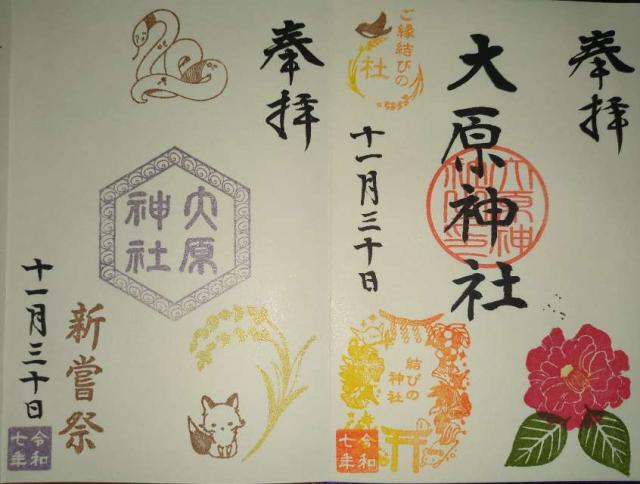 奉拝
大原神社
ご縁結びの
社
十一月三十日
結びの
神社
令和
七年
奉拝
大原
神社
新嘗祭
十一月三十日
令和
七年